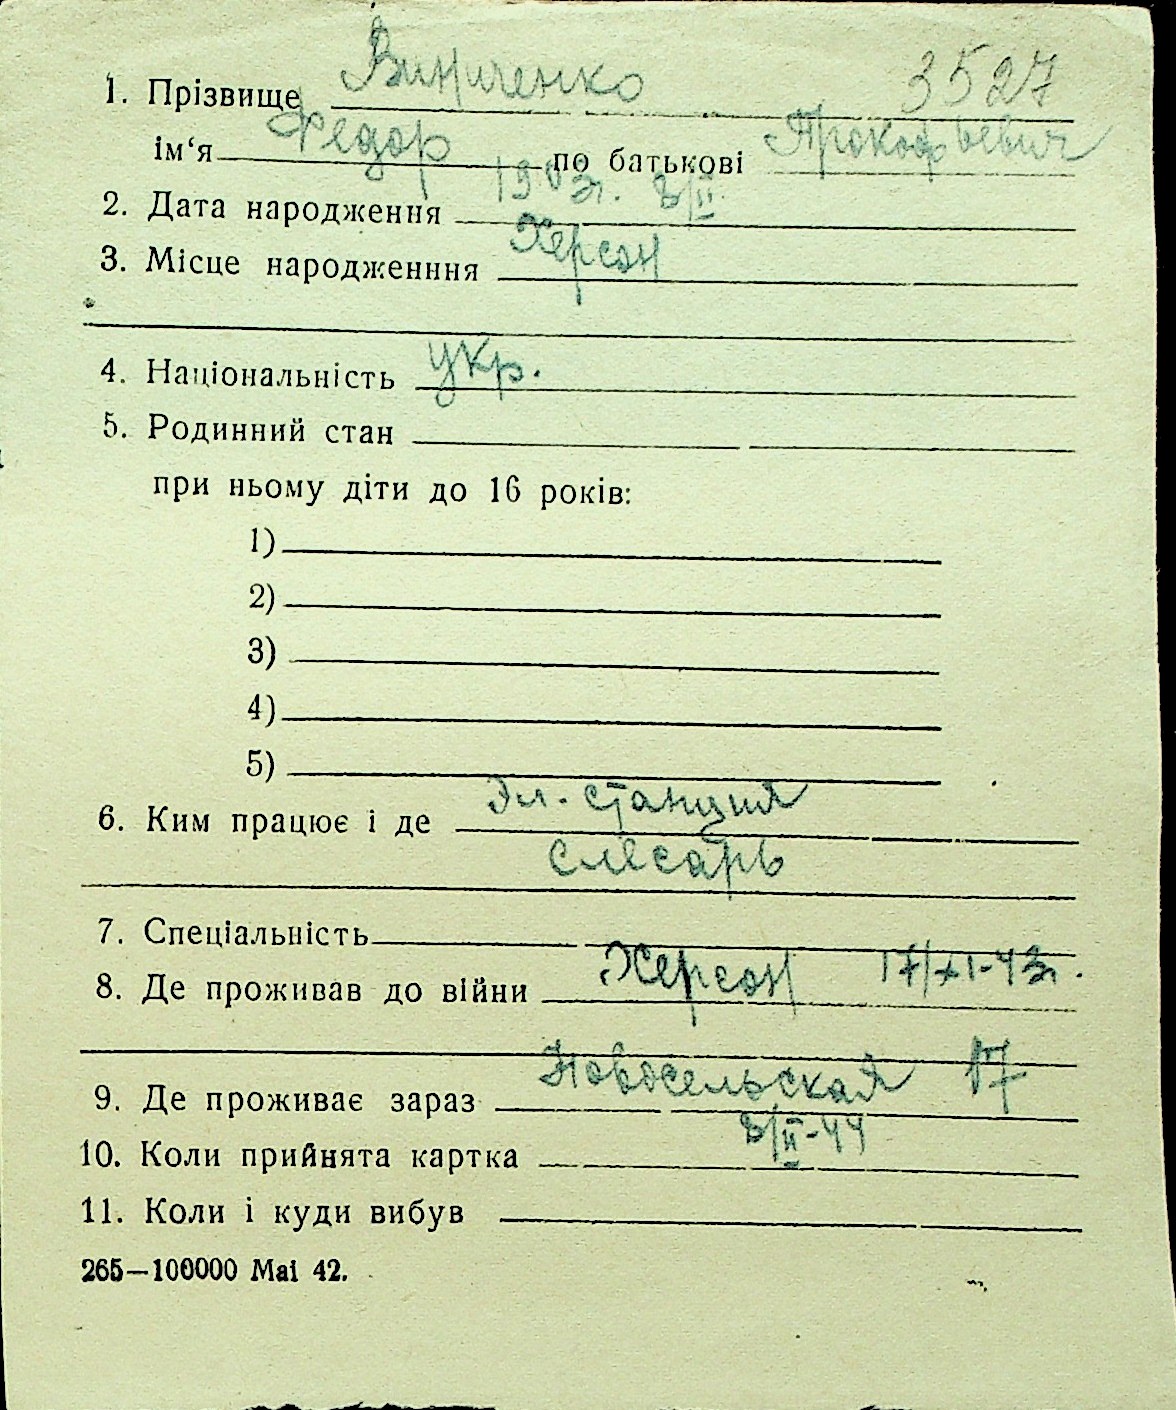 1. Прізвище Виниченко 3527
ім‘я Федор по батькові Прокофьевич
2. Дата народження 1903г. 8/II
3. Місце народженння Херсон
4. Національність укр.
5. Родинний стан
при ньому діти до 16 років:
1)
2)
3)
4)
5)
6. Ким працює і де Эл. станция
слесарь
7. Спеціальність
8. Де проживав до війни Херсон 17/XI-43г.
9. Де проживає зараз Новосельская 17
10. Коли прийнята картка 8/II-44
11. Коли і куди вибув
265—100000 Mai 42.